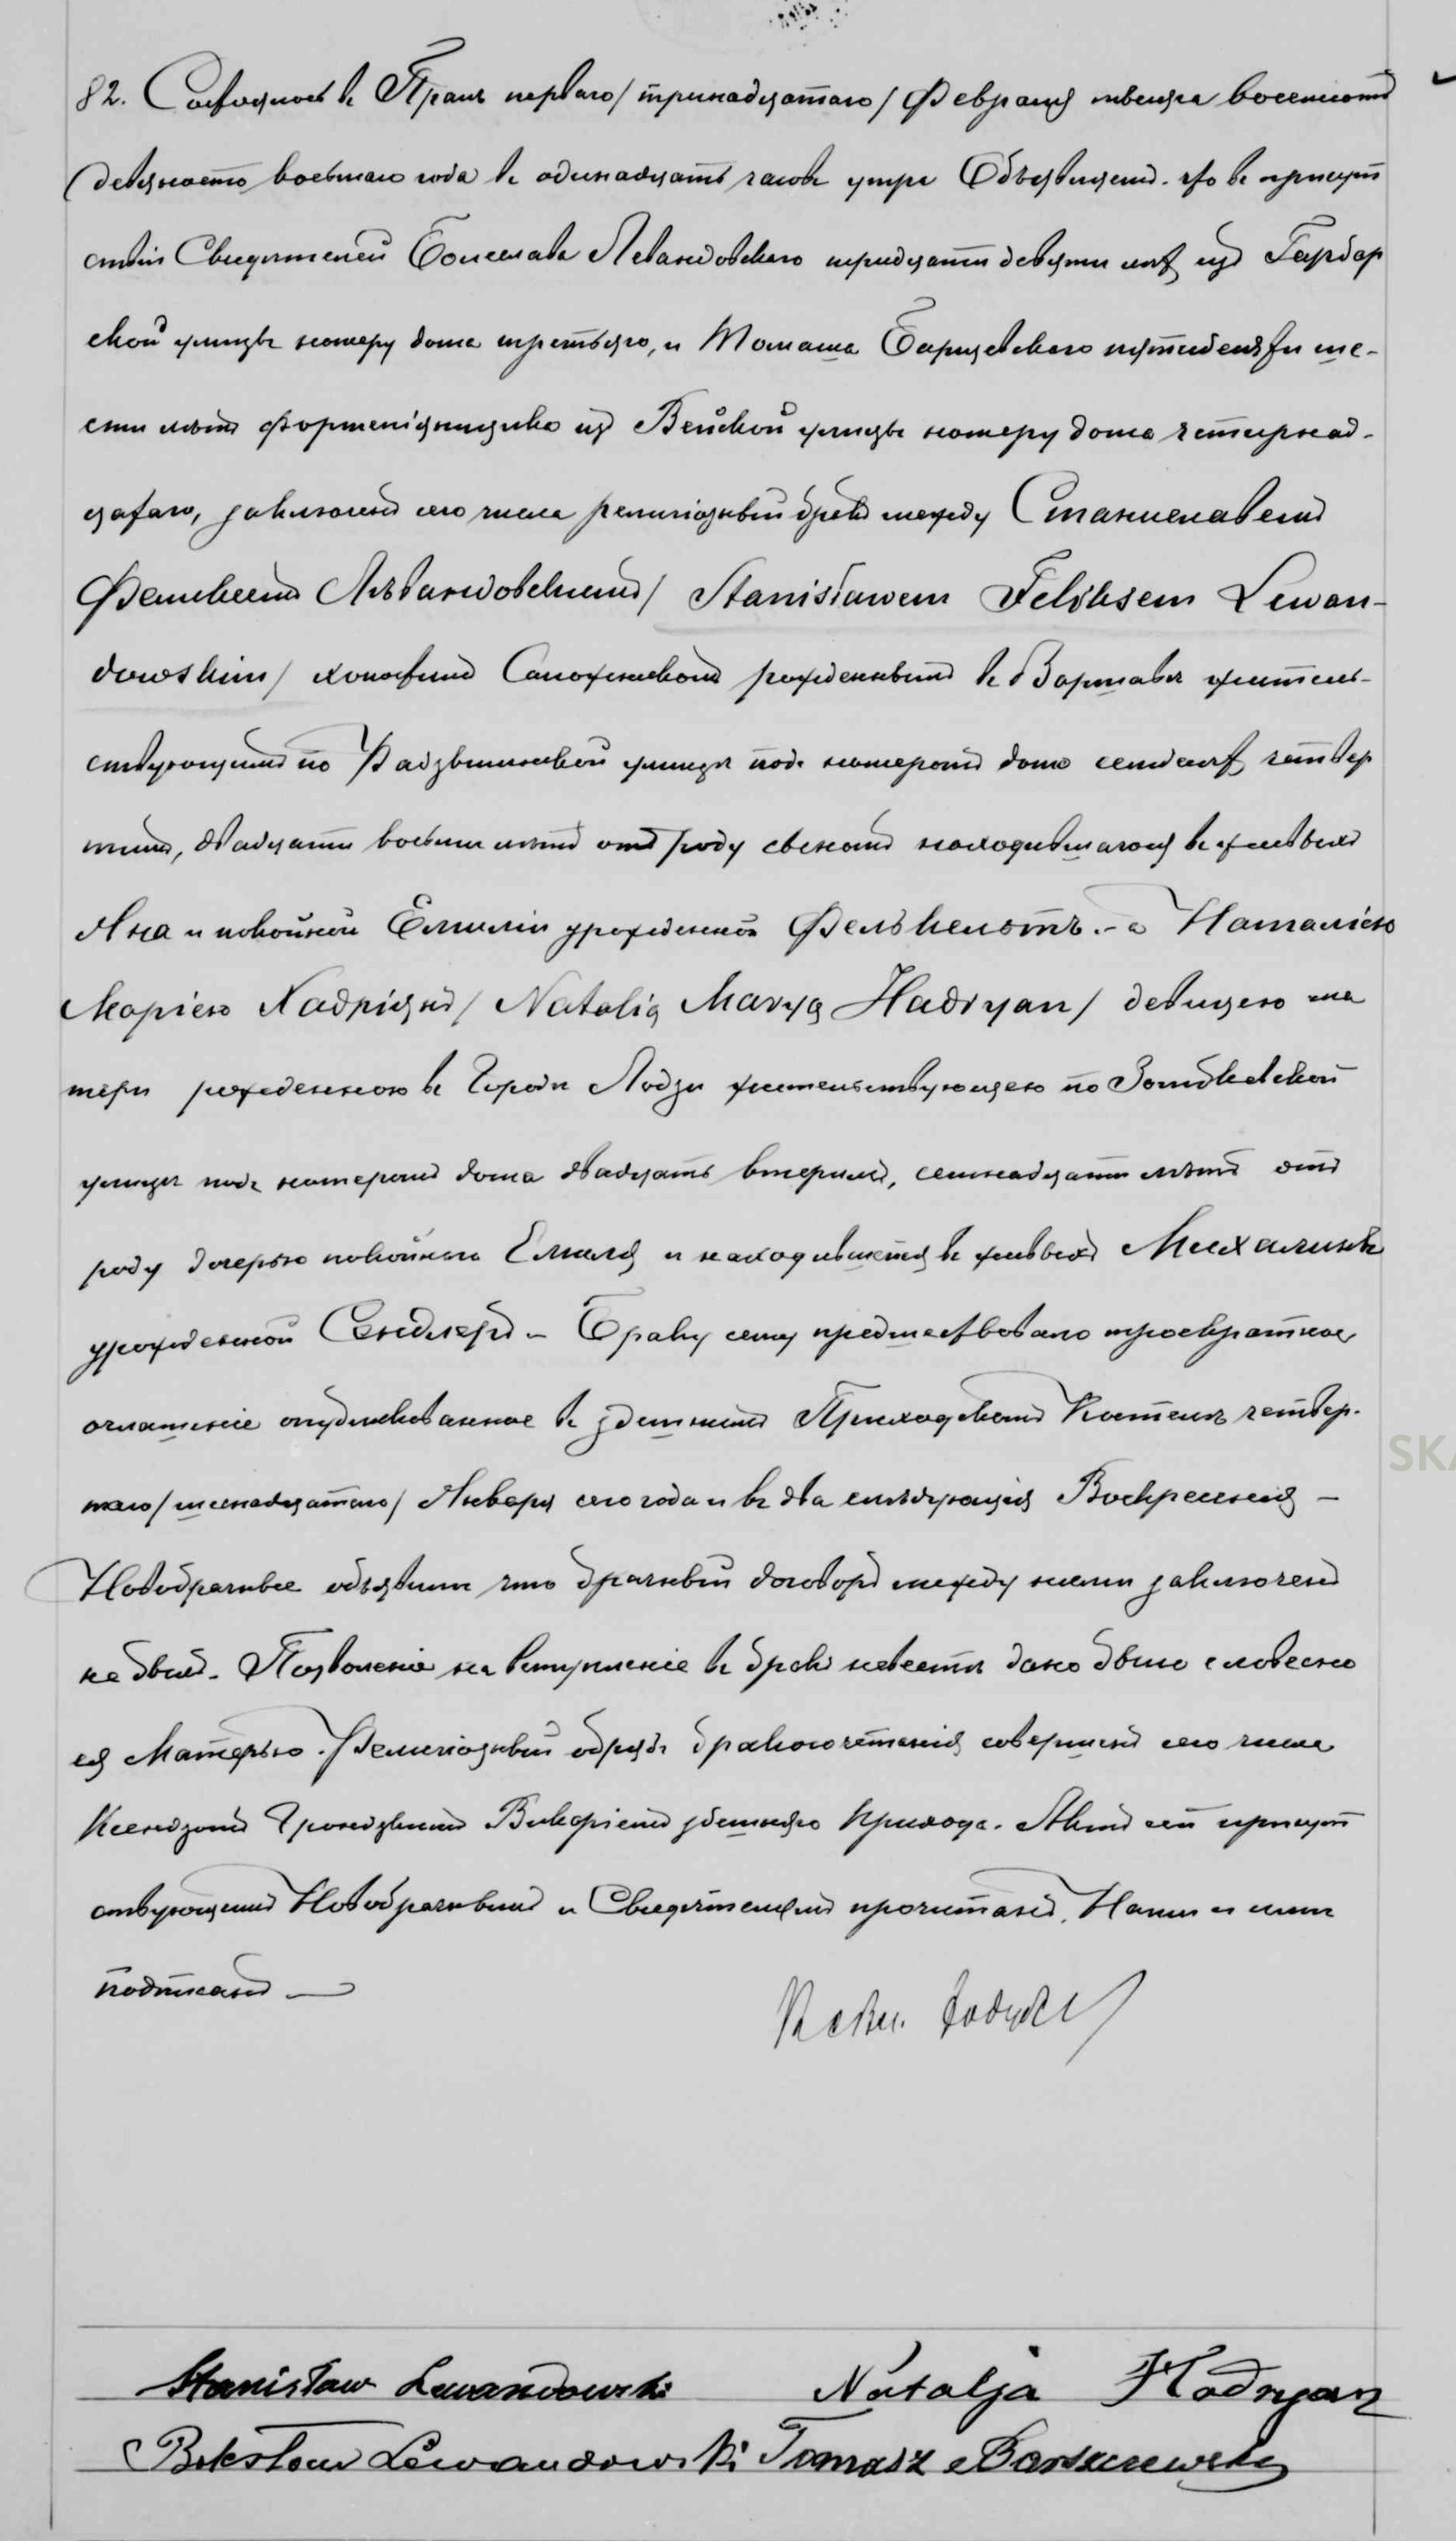 82. Состоялось въ Праге перваго /тринадцатаго/ Февраля тысяча восемьсотъ
девяносто восьмаго года въ одинадцать часовъ утра Объявляемъ, что въ присут
ствіи Свидѣтелей Болеслава Левандовскаго тридцати девяти лѣтъ изъ Гарбар
ской улицы номеру дома третьяго, и Томаша Барщевскаго пятидесяти ше-
сти лѣтъ изъ Вейской улицы номеру дома четырнад-
цатаго, заключенъ сего числа религіозный бракъ между Станиславомъ
Феликсомъ Левандовскимъ / Stanisławem Feliksem Lewan-
dowskim / холостымъ рожденнымъ въ Варшавѣ житель-
ствующимъ по улицѣ подъ номеромъ дома семьдесятъ четвер
тымъ, двадцати восьми лѣтъ отъ роду сыномъ находившагося въ живыхъ
Яна и покойной Емиліи урожденной - а Наталіею
Маріею Хадріянъ / Natalią Maryą Hadryan / девицею ма
тери рожденною въ Городѣ Лодзи жительствующею по Зомбковской
улицѣ подъ номеромъ дома двадцать вторымъ, семнадцати лѣтъ отъ
роду дочерью покойнаго Емиля и находившейся въ живыхъ Михалины
урожденной Сендлеръ - Браку сему предшествовало троекратное
оглашеніе опубликованное въ здѣшнемъ Приходскомъ Костелѣ четвер-
таго /шестнадцатаго/ Января сего года и въ два слѣдующія Воскресенія -
Новобрачные объявили что брачный договоръ между ними заключенъ
не былъ. Позволеніе на вступленіе въ бракъ невестѣ дано было словесно
ея Матерью. Религіозный обрядъ бракосочетанія совершенъ сего числа
Ксендзомъ Викаріемъ здешняго прихода. Актъ сей присут
ствующимъ Новобрачнымъ и Свидѣтелямъ прочитанъ, Нами и ими
подписанъ —
Stanisław Lewandowski Natalja Hadryan
Bolesław Lewandowski Tomasz Barszczewski